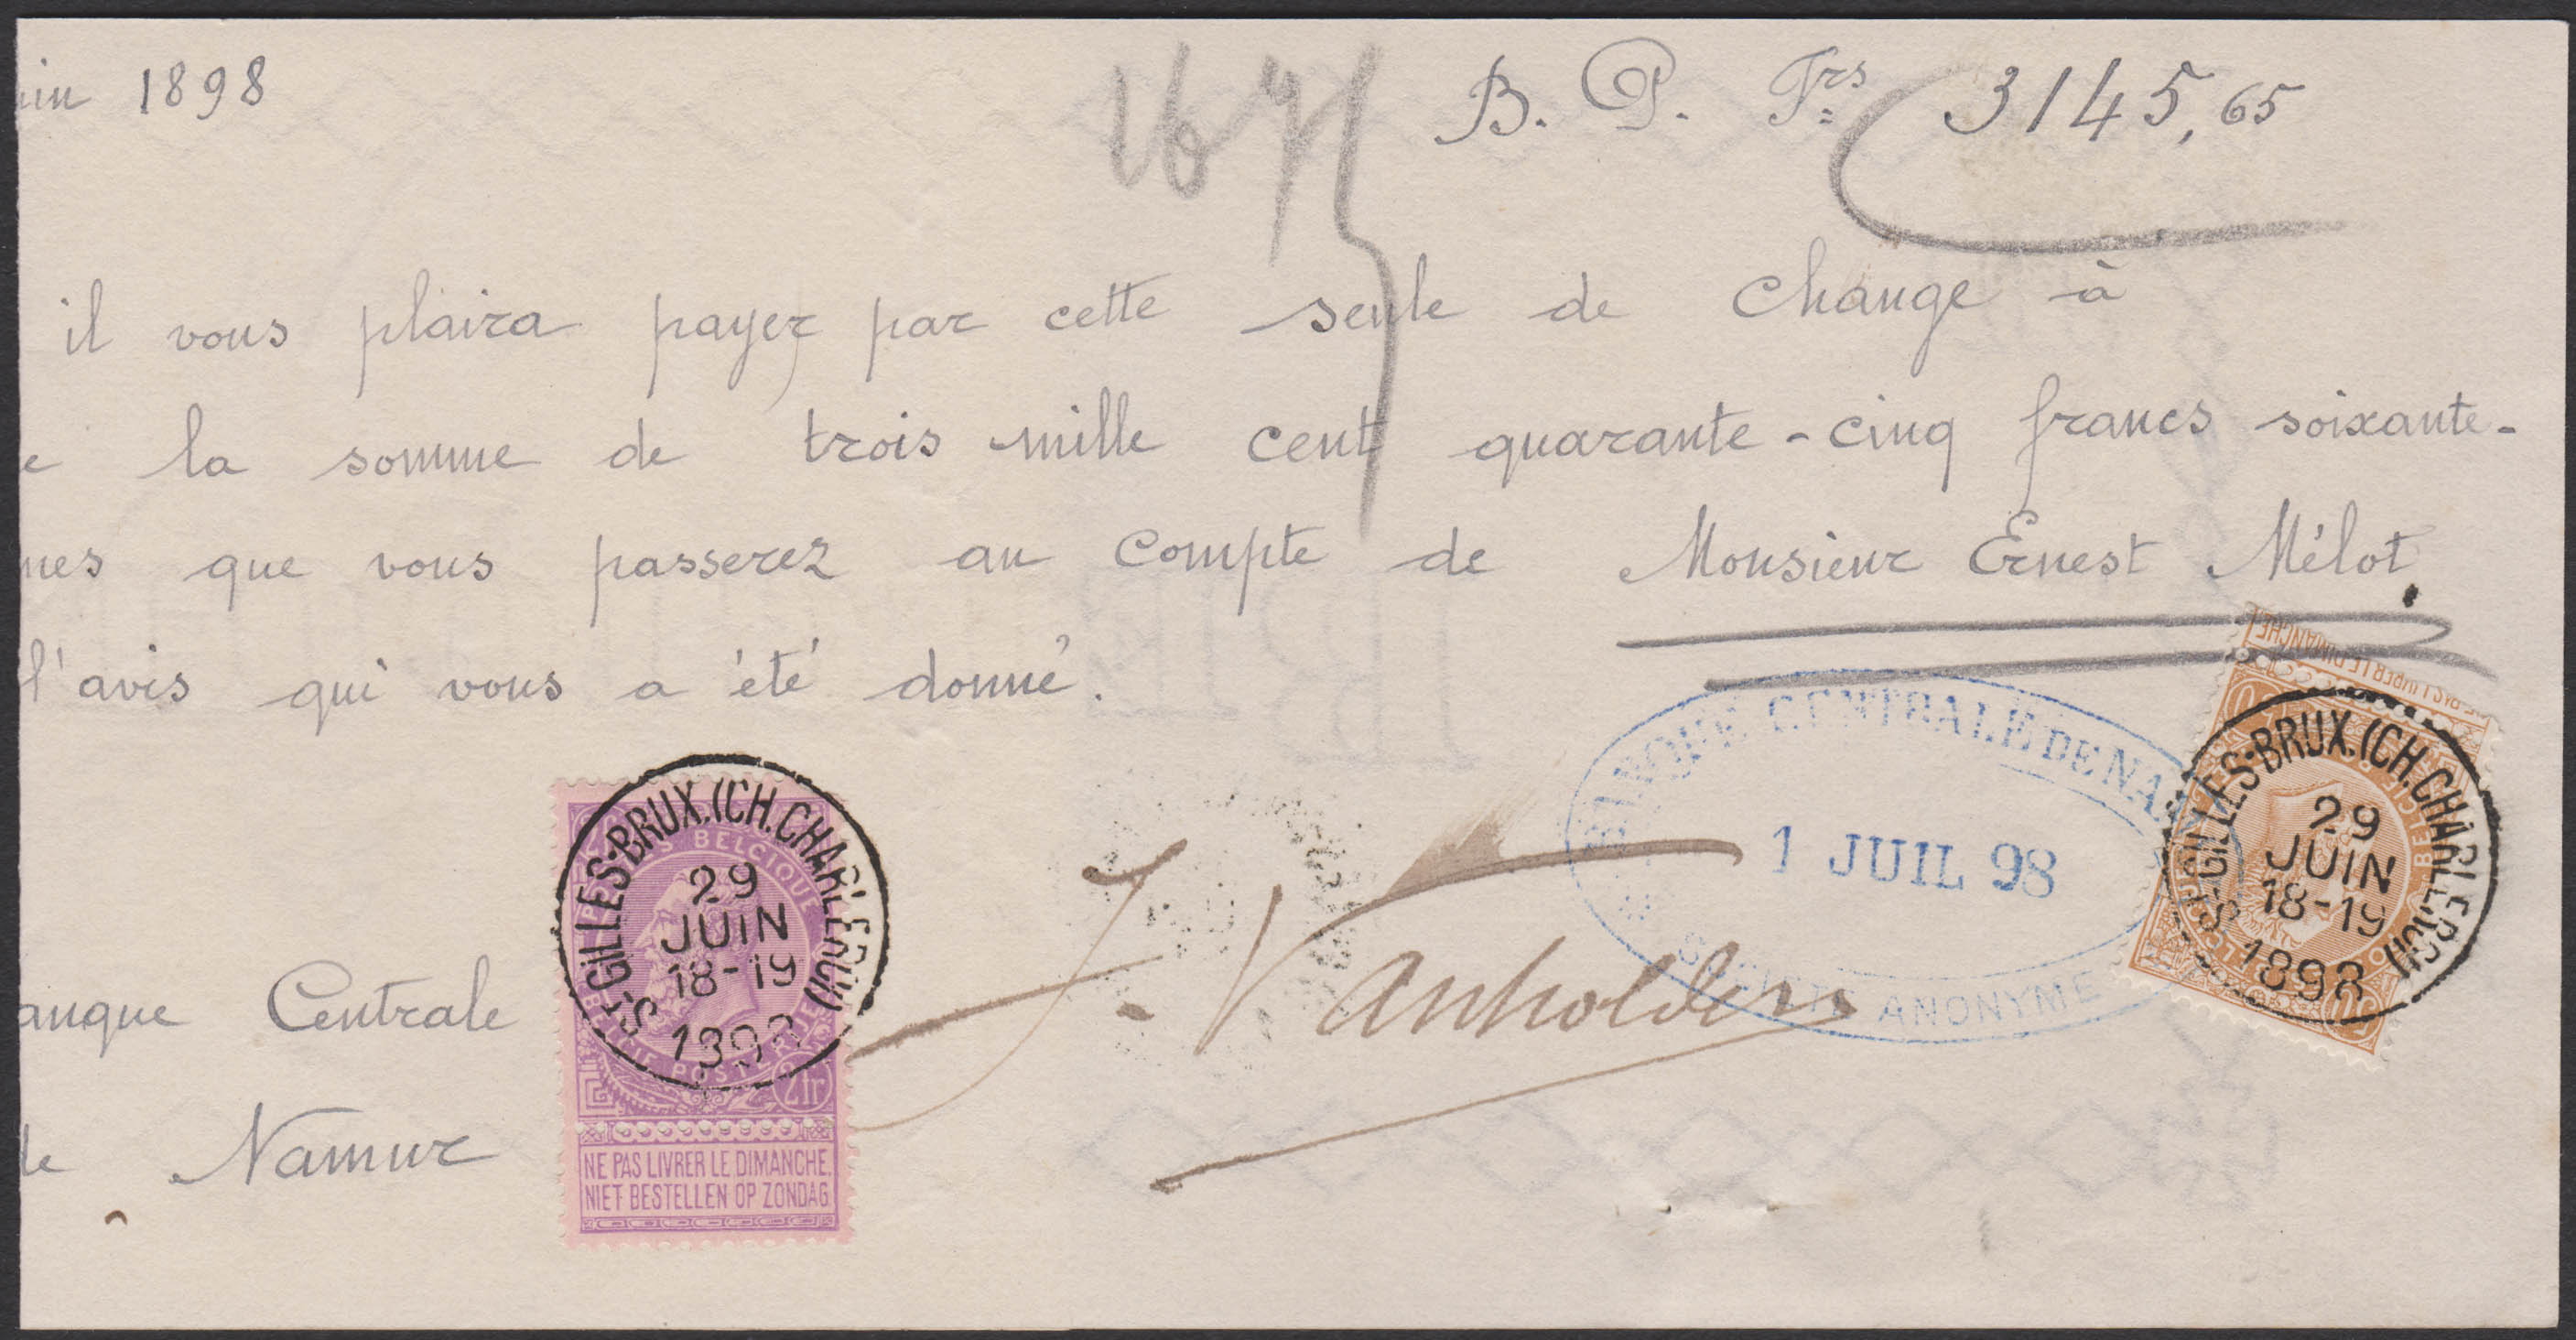 in 1898
B. P. Frs 3145,65
il vous plaira payer par cette seule de Change à
e la somme de trois mille cent quarante-cinq francs soixante-
mes que vous passerez au compte de Monsieur Ernest Mélot
l'avis qui vous a été donné.
anque Centrale
de Namur
J. Vanholders
BANQUE CENTRALE DE NA
1 JUIL 98
SOCIÉTÉ ANONYME
POSTES BELGIQUE
BELGIE POSTERIJEN
2fr
NE PAS LIVRER LE DIMANCHE,
NIET BESTELLEN OP ZONDAG
ST-GILLES-BRUX. (CH. CHARLEROI)
29
JUIN
18-19
1898
NE PAS LIVRER LE DIMANCHE
ST-GILLES-BRUX. (CH. CHARLEROI)
29
JUIN
18-19
1898